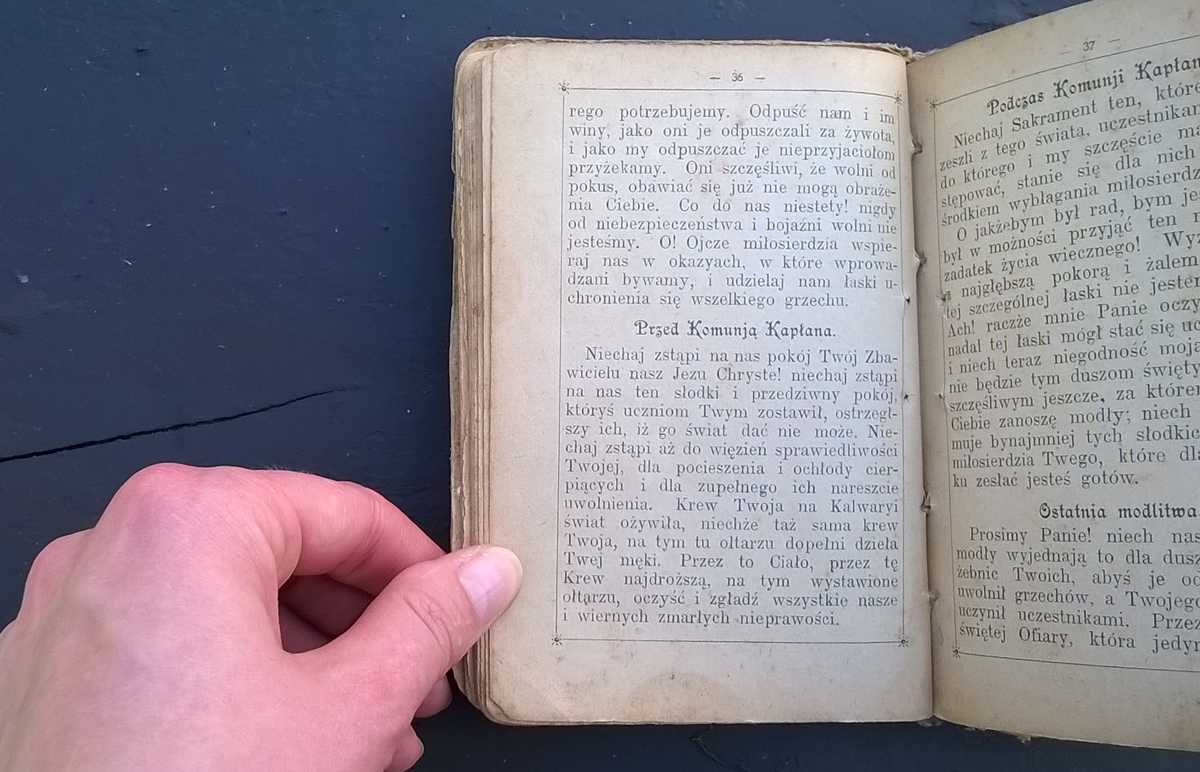 — 36 —
rego potrzebujemy. Odpuść nam i im
winy, jako oni je odpuszczali za żywota,
i jako my odpuszczać je nieprzyjaciołom
przyżekamy. Oni szczęśliwi, że wolni od
pokus, obawiać się już nie mogą obraże-
nia Ciebie. Co do nas niestety! nigdy
od niebezpieczeństwa i bojaźni wolni nie
jesteśmy. O! Ojcze miłosierdzia wspie-
raj nas w okazyach, w które wprowa-
dzani bywamy, i udzielaj nam łaski u-
chronienia się wszelkiego grzechu.
Przed Komunją Kapłana.
Niechaj zstąpi na nas pokój Twój Zba-
wicielu nasz Jezu Chryste! niechaj zstąpi
na nas ten słodki i przedziwny pokój,
któryś uczniom Twym zostawił, ostrzegł-
szy ich, iż go świat dać nie może. Nie-
chaj zstąpi aż do więzień sprawiedliwości
Twojej, dla pocieszenia i ochłody cier-
piących i dla zupełnego ich nareszcie
uwolnienia. Krew Twoja na Kalwaryi
świat ożywiła, niechże taż sama krew
Twoja, na tym tu ołtarzu dopełni dzieła
Twej męki. Przez to Ciało, przez tę
Krew najdroższą, na tym wystawione
ołtarzu, oczyść i zgładź wszystkie nasze
i wiernych zmarłych nieprawości.
— 37 —
Podczas Komunji Kapłan
Niechaj Sakrament ten, które
zeszli z tego świata, uczestnikam
do którego i my szczęście m
stępować, stanie się dla nich
środkiem wybłagania miłosierdz
O jakżebym był rad, bym je
był w możności przyjąć ten
zadatek życia wiecznego! Wyz
z najgłębszą pokorą i żalem
tej szczególnej łaski nie jestem
Ach! raczże mnie Panie oczy
nadal tej łaski mógł stać się uc
i niech teraz niegodność moja
nie będzie tym duszom święty
szczęśliwym jeszcze, za które
Ciebie zanoszę modły; niech
muje bynajmniej tych słodkic
miłosierdzia Twego, które dla
ku zesłać jesteś gotów.
Ostatnia modlitwa.
Prosimy Panie! niech nas
modły wyjednają to dla dusz
żebnic Twoich, abyś je od
uwolnił grzechów, a Twojego
uczynił uczestnikami. Przez
świętej Ofiary, która jedyn